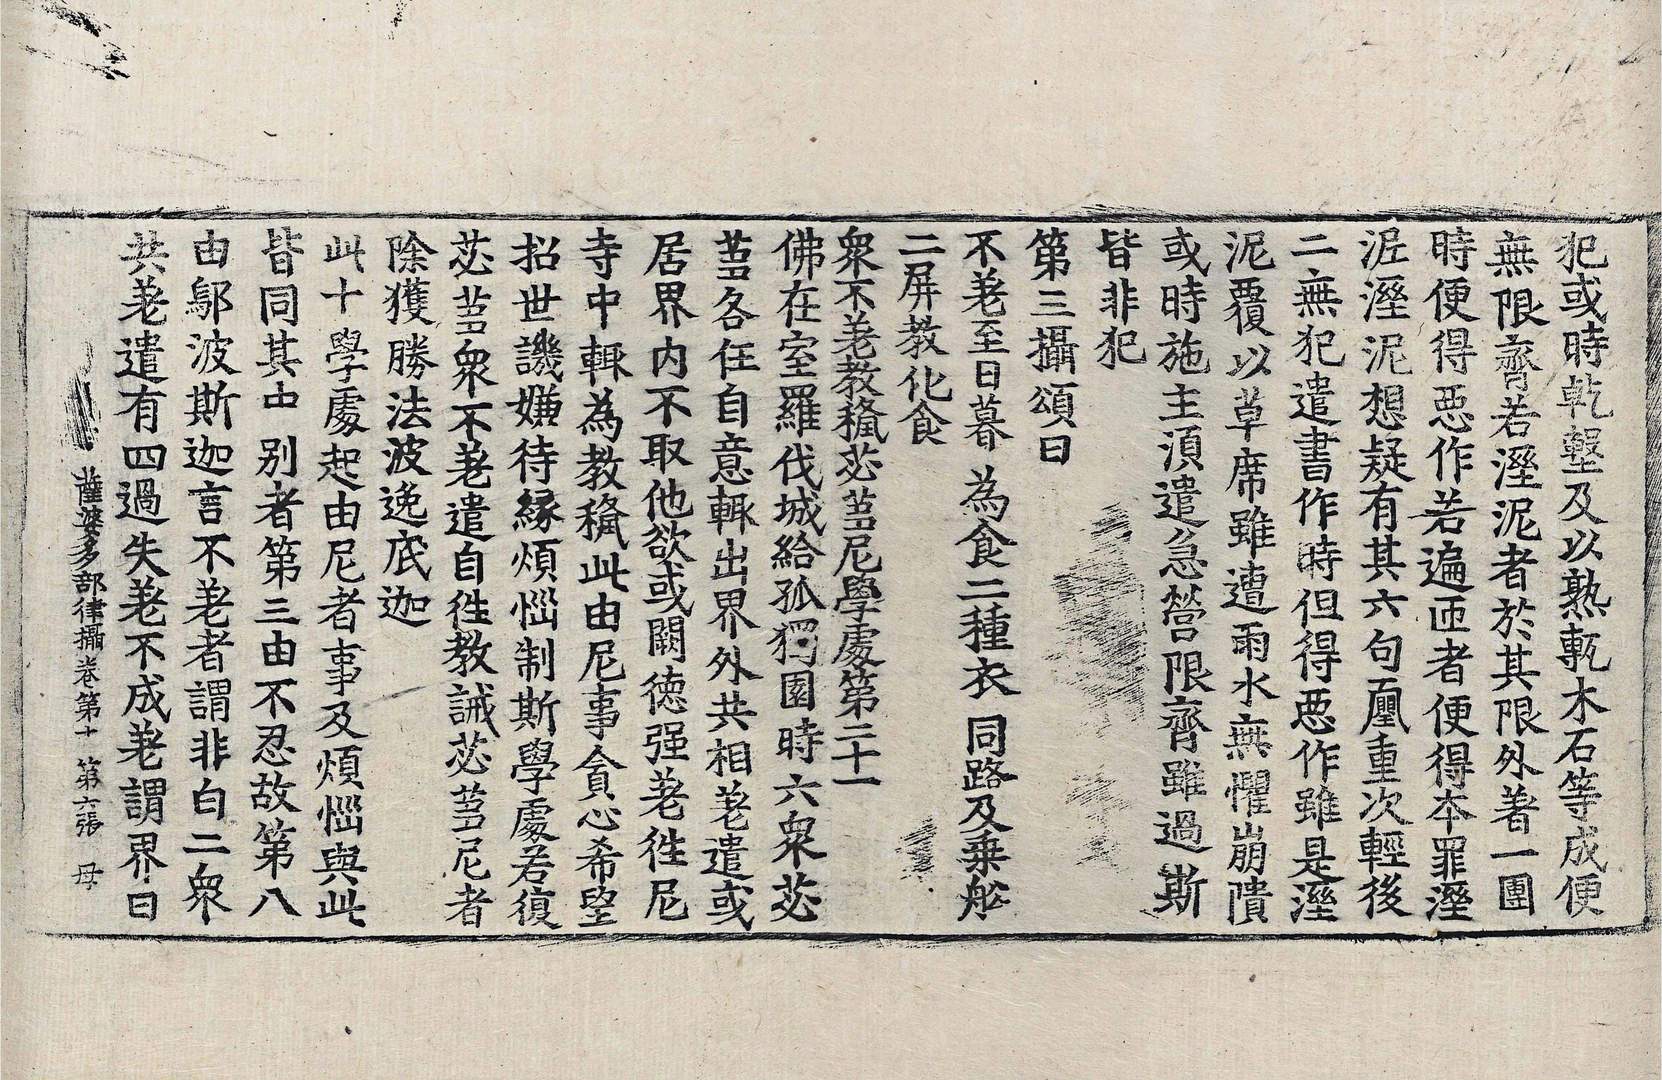 犯或時乾墼及以熟甎木石等成便
無限齊若溼泥者於其限外著一團
時便得惡作若遍匝者便得本罪溼
泥溼泥想疑有其六句二重次輕後
二無犯遣書作時但得惡作雖是溼
泥覆以草席雖遭雨水無懼崩隤
或時施主須遣急營限齊雖過斯
皆非犯
第三攝頌曰
不差至日暮 為食二種衣 同路及乗舩
二屏教化食
衆不差教授苾蒭尼學處第二十一
佛在室羅伐城給孤獨園時六衆苾
蒭各任自意輙出界外共相差遣或
居界內不取他欲或闕德强差往尼
寺中輙為教授此由尼事貪心希望
招世譏嫌待緣煩惱制斯學處若復
苾蒭衆不差遣自往教誡苾蒭尼者
除獲勝法波逸底迦
此十學處起由尼者事及煩惱與此
皆同其中別者第三由不忍故第八
由鄔波斯迦言不差者謂非白二衆
共差遣有四過失差不成差謂界曰
薩婆多部律攝卷第十 第六張 母